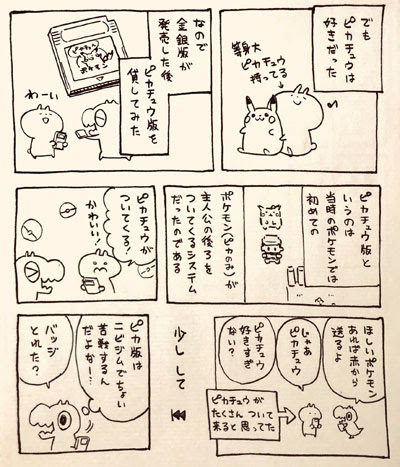 でも
ピカチュウは
好きだった
等身大
ピカチュウ
持ってる
なので
金銀版が
発売した後
ピカチュウ版を
貸してみた
わーい
ピカチュウ版と
いうのは
当時のポケモンでは
初めての
ポケモン(ピカのみ)が
主人公の後ろを
ついてくるシステム
だったのである
ピカチュウが
ついてくる!
かわいい!
ほしいポケモン
あれば赤から
送るよ
じゃあ
ピカチュウ
ピカチュウ
好きすぎ
ない?
ピカチュウが
たくさんついて
来ると思ってた
少しして
ピカ版は
ニビジムでちょい
苦戦するん
だよなー…
バッジ
とれた?